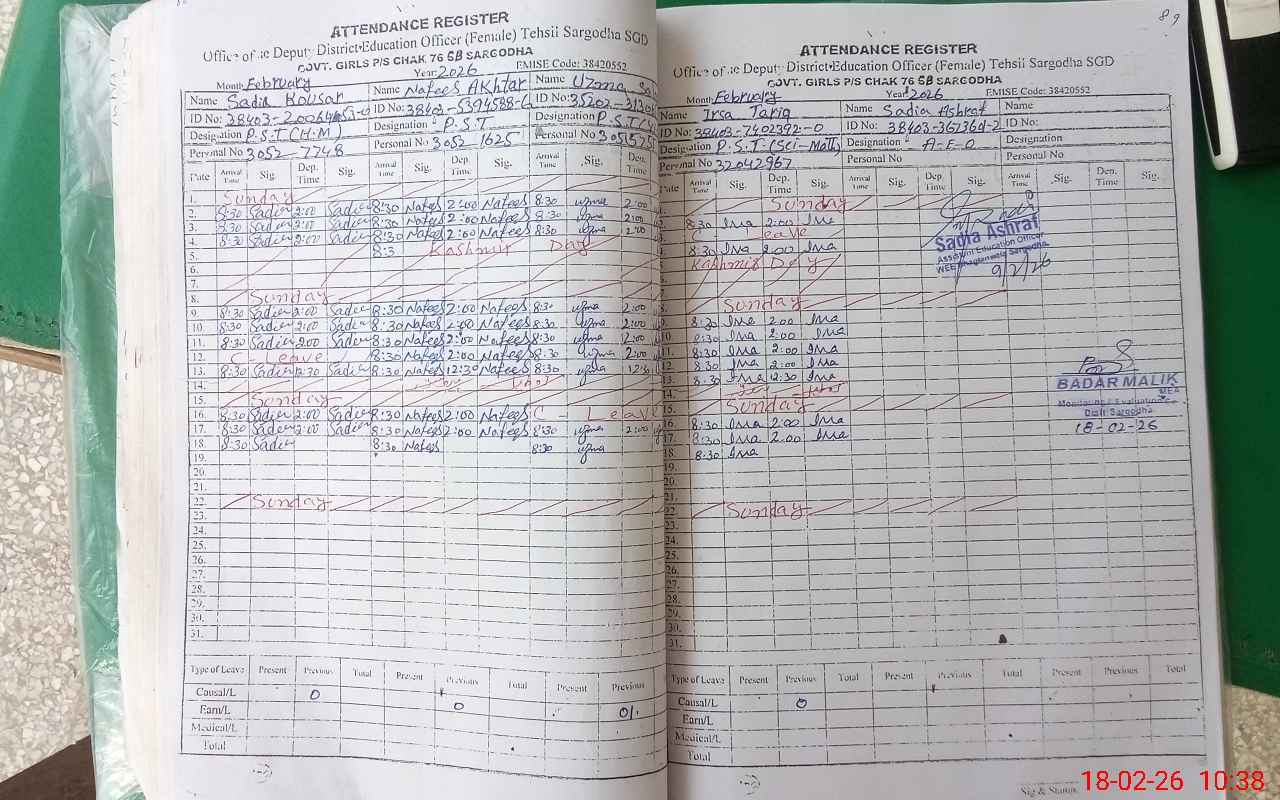 ATTENDANCE REGISTER
Office of Deputy District Education Officer (Female) Tehsil Sargodha SGD
GOVT. GIRLS P/S CHAK 76 SB SARGODHA
Month February Year 2026 EMISE Code: 38420552
Name Sadia Kousar Name Nafees Akhtar Name Uzma
ID No: ID No: 38402-5394588- ID No: 35202-
Designation P.S.T (H.M) Designation P.S.T Designation P.S.T
Personal No 3052-7748 Personal No 3052 1625 Personal No
Date Arrival Time Sig. Dep. Time Sig. Arrival Time Sig. Dep. Time Sig. Arrival Time Sig. Dep. Time
1. Sunday
2. 8:30 Sadia 2:00 Sadia 8:30 Nafees 2:00 Nafees 8:30 uzma 2:00
3. 8:30 Sadia 2:00 Sadia 8:30 Nafees 2:00 Nafees 8:30 uzma 2:00
4. 8:30 Sadia 2:00 Sadia 8:30 Nafees 2:00 Nafees 8:30 uzma 2:00
5. 8:3 Kashmir Day
6.
7.
8. Sunday
9. 8:30 Sadia 2:00 Sadia 8:30 Nafees 2:00 Nafees 8:30 uzma 2:00
10. 8:30 Sadia 2:00 Sadia 8:30 Nafees 2:00 Nafees 8:30 uzma 2:00
11. 8:30 Sadia 2:00 Sadia 8:30 Nafees 2:00 Nafees 8:30 uzma 2:00
12. C-Leave 8:30 Nafees 2:00 Nafees 8:30 uzma 2:00
13. 8:30 Sadia 12:30 Sadia 8:30 Nafees 12:30 Nafees 8:30 uzma 12:30
14.
15. Sunday
16. 8:30 Sadia 2:00 Sadia 8:30 Nafees 2:00 Nafees C - Leave
17. 8:30 Sadia 2:00 Sadia 8:30 Nafees 2:00 Nafees 8:30 uzma 2:00
18. 8:30 Sadia 8:30 Nafees 8:30 uzma
19.
20.
21.
22. Sunday
23.
24.
25.
26.
27.
28.
29.
30.
31.
Type of Leave Present Previous Total Present Previous Total Present Previous
Causal/L 0
Earn/L 0 0/.
Medical/L
Total
89
ATTENDANCE REGISTER
Office of Deputy District Education Officer (Female) Tehsil Sargodha SGD
GOVT. GIRLS P/S CHAK 76 SB SARGODHA
Month February Year 2026 EMISE Code: 38420552
Name Irsa Tariq Name Sadia Ashraf Name
ID No: 38403-7402392-0 ID No: 38403-367364-2 ID No:
Designation P.S.T (Sci-Math) Designation A-E-O Designation
Personal No 32042967 Personal No Personal No
Date Arrival Time Sig. Dep. Time Sig. Arrival Time Sig. Dep. Time Sig. Arrival Time Sig. Dep. Time Sig.
1. Sunday
8:30 Irsa 2:00 Irsa
Leave
8:30 Irsa 2:00 Irsa
Kashmir Day
Sunday
8:30 Irsa 2:00 Irsa
10. 8:30 Irsa 2:00 Irsa
11. 8:30 Irsa 2:00 Irsa
12. 8:30 Irsa 2:00 Irsa
13. 8:30 Irsa 12:30 Irsa
14.
15. Sunday
16. 8:30 Irsa 2:00 Irsa
17. 8:30 Irsa 2:00 Irsa
18. 8:30 Irsa
19.
20.
21.
22. Sunday
23.
24.
25.
26.
27.
28.
29.
30.
31.
Sadia Ashraf
Assistant Education Officer
9/2/26
BADAR MALIK
MEA
Monitoring & Evaluation
Distt Sargodha
18-02-26
Type of Leave Present Previous Total Present Previous Total Present Previous Total
Causal/L 0
Earn/L
Medical/L
Total
Sig & Stamp
18-02-26 10:38